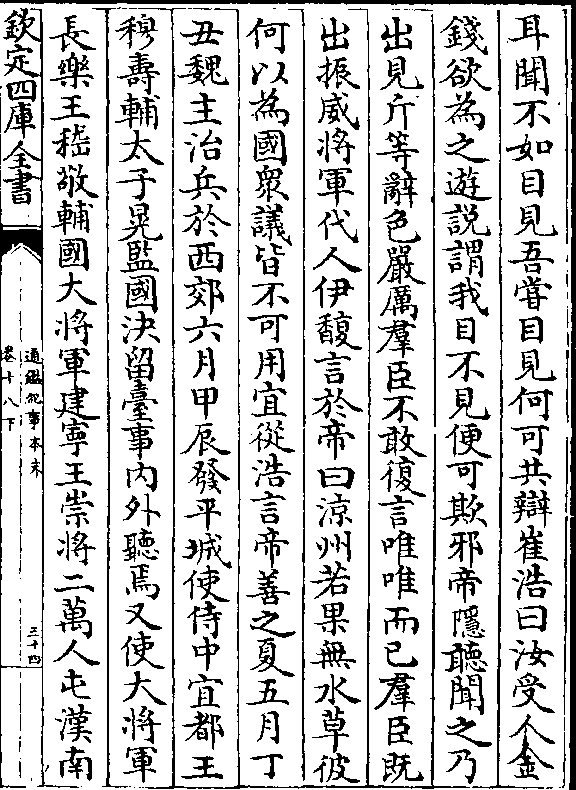 耳聞不如目見吾嘗目見何可共辯崔浩曰汝受人金
錢欲為之遊說謂我目不見便可欺邪帝隱聽聞之乃
出見斤等辭色嚴厲羣臣不敢復言唯唯而已羣臣既
出振威將軍代人伊馥言於帝曰涼州若果無水草彼
何以為國衆議皆不可用宜從浩言帝善之夏五月丁
丑魏主治兵於西郊六月甲辰發平城使侍中宜都王
穆壽輔太子晃監國決留臺事內外聽焉又使大將軍
長樂王嵇敬輔國大將軍建寧王崇將二萬人屯漠南
欽定四庫全書
通鑑紀事本末
卷十八下
三十四